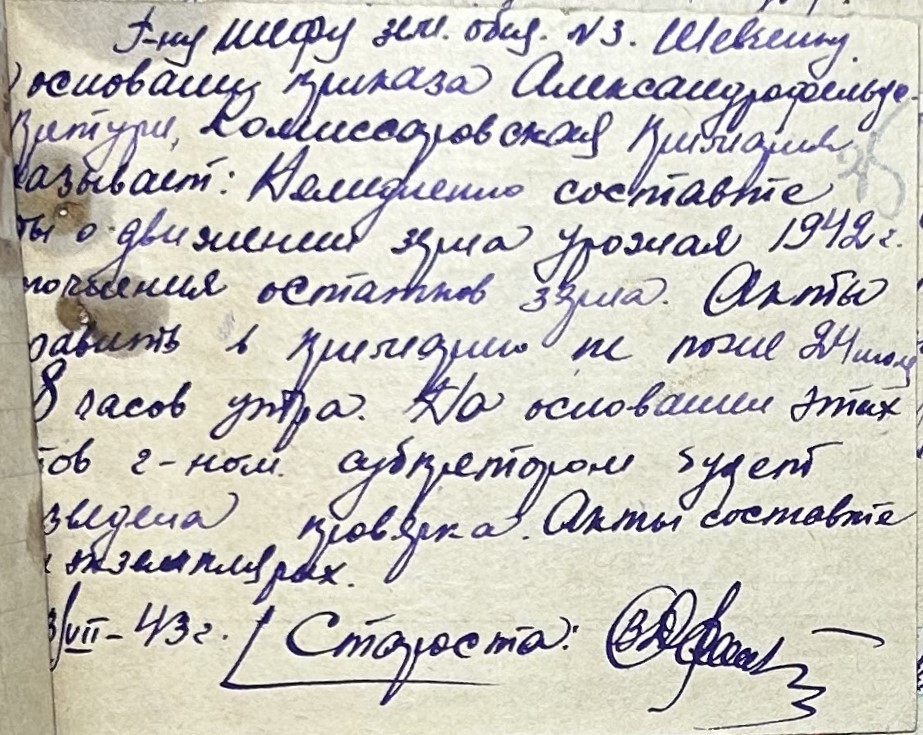 Г-ну шефу зем. общ. N3. Шевченку
основании приказа Александрофельдс
претуры, Комиссаровская Примария
казывает: Немедленно составте
ты о движении зерна урожая 1942 г.
остатков зерна. Акты
равить в примарию не позже 24 июля
8 часов утра. На основании этих
тов г-ном. субпретором будет
зведена проверка. Акты составте
х экземплярах.
3/VII-43 г. Староста: